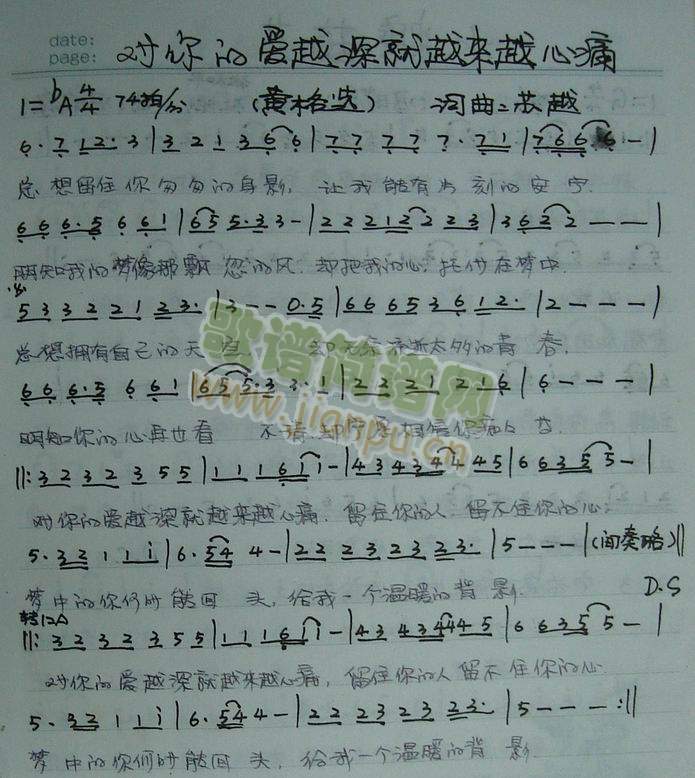 date:
page: 对你的爱越深就越来越心痛
1=bA 4/4 74拍/分 (黄格选) 词曲:苏越
6·7 12·3|3 2 1 3 6 6|7 7 7 7 7·71|7 6 6 6-|
总想留住你匆匆的身影, 让我能有片刻的安宁.
6 6 6·5 6 6 1|65 5·3 3-|2 2 2 1 2 2 2 3|3 6 2 2---|
明知我的梦像那飘忽的风, 却把我的心托付在梦中.
5 3 3 2 2 1 2 3·|3--0·5|6 6 6 5 3 6 1 2·|2---|
总想拥有自己的天空 却无奈 太多的青春.
6 6 6·5 6 6 1|6 5 5·3 3·1|2 2 2 1 2 1 6|6---|
明知你的心再也看不清 却宁愿相信你 人
‖:3 2 3 2 3 5 5|1 1 1 6 1 1-|4 3 4 3 4 4 4 5|6 6 3 5 5-|
对你的爱越深就越来越心痛, 留住你的人 留不住你的心;
5·3 2 1 1 i|6·5 4 4-|2 2 2 3 2 3 2 3·|5---|(间奏略)‖
梦中的你何时能回头, 给我一个温暖的背影. D.S
转1=A
‖:3 2 3 2 3 5 5|1 1 1 6 1 1-|4 3 4 3 4 4 4 5|6 6 3 5 5-|
对你的爱越深就越来越心痛, 留住你的人 留不住你的心
5·3 2 1 1 i|6·5 4 4-|2 2 2 3 2 3 2 3·|5---:‖
梦中的你何时能回头, 给我一个温暖的背影.
歌谱简谱网
www.jianpu.cn